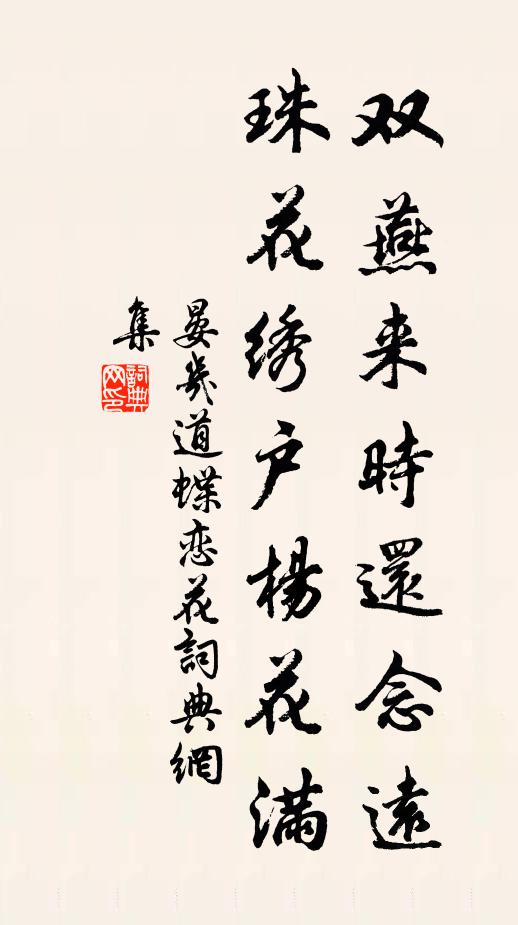 双燕来時還念遠
珠花绣户楊花满
晏幾道蝶恋花詞典網
集
詞典
网印